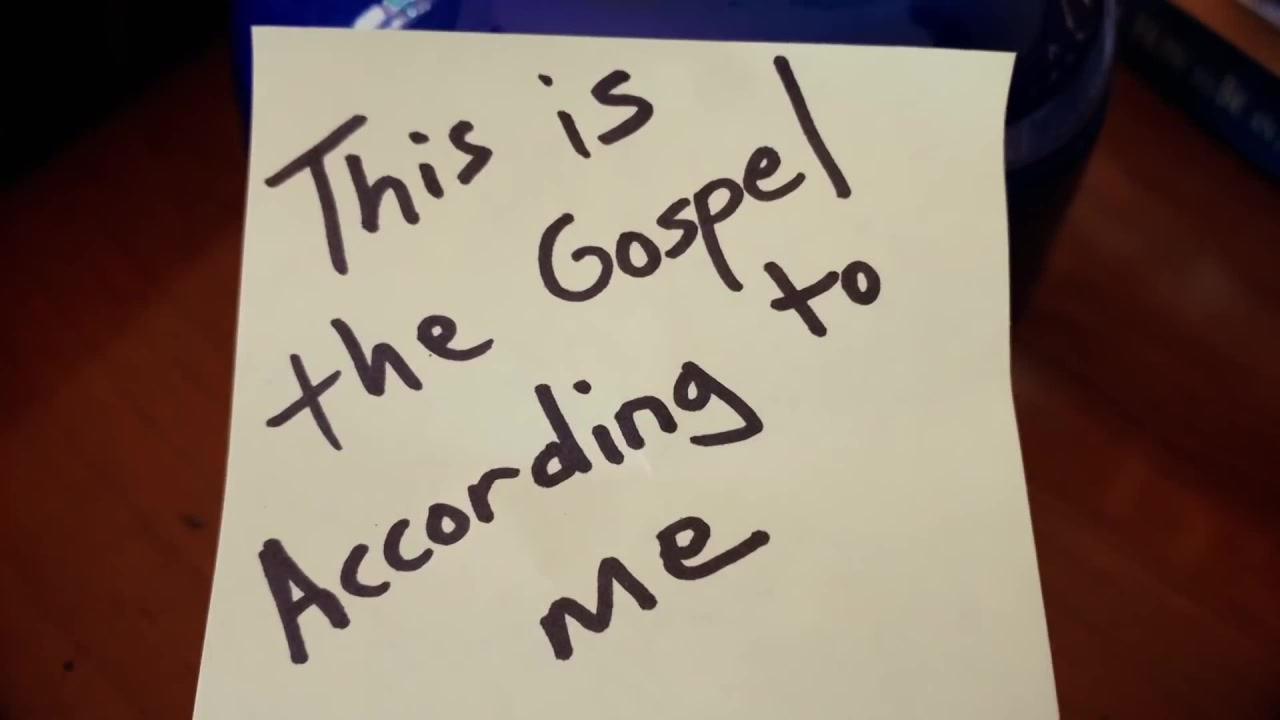 This is
the Gospel
According to
me